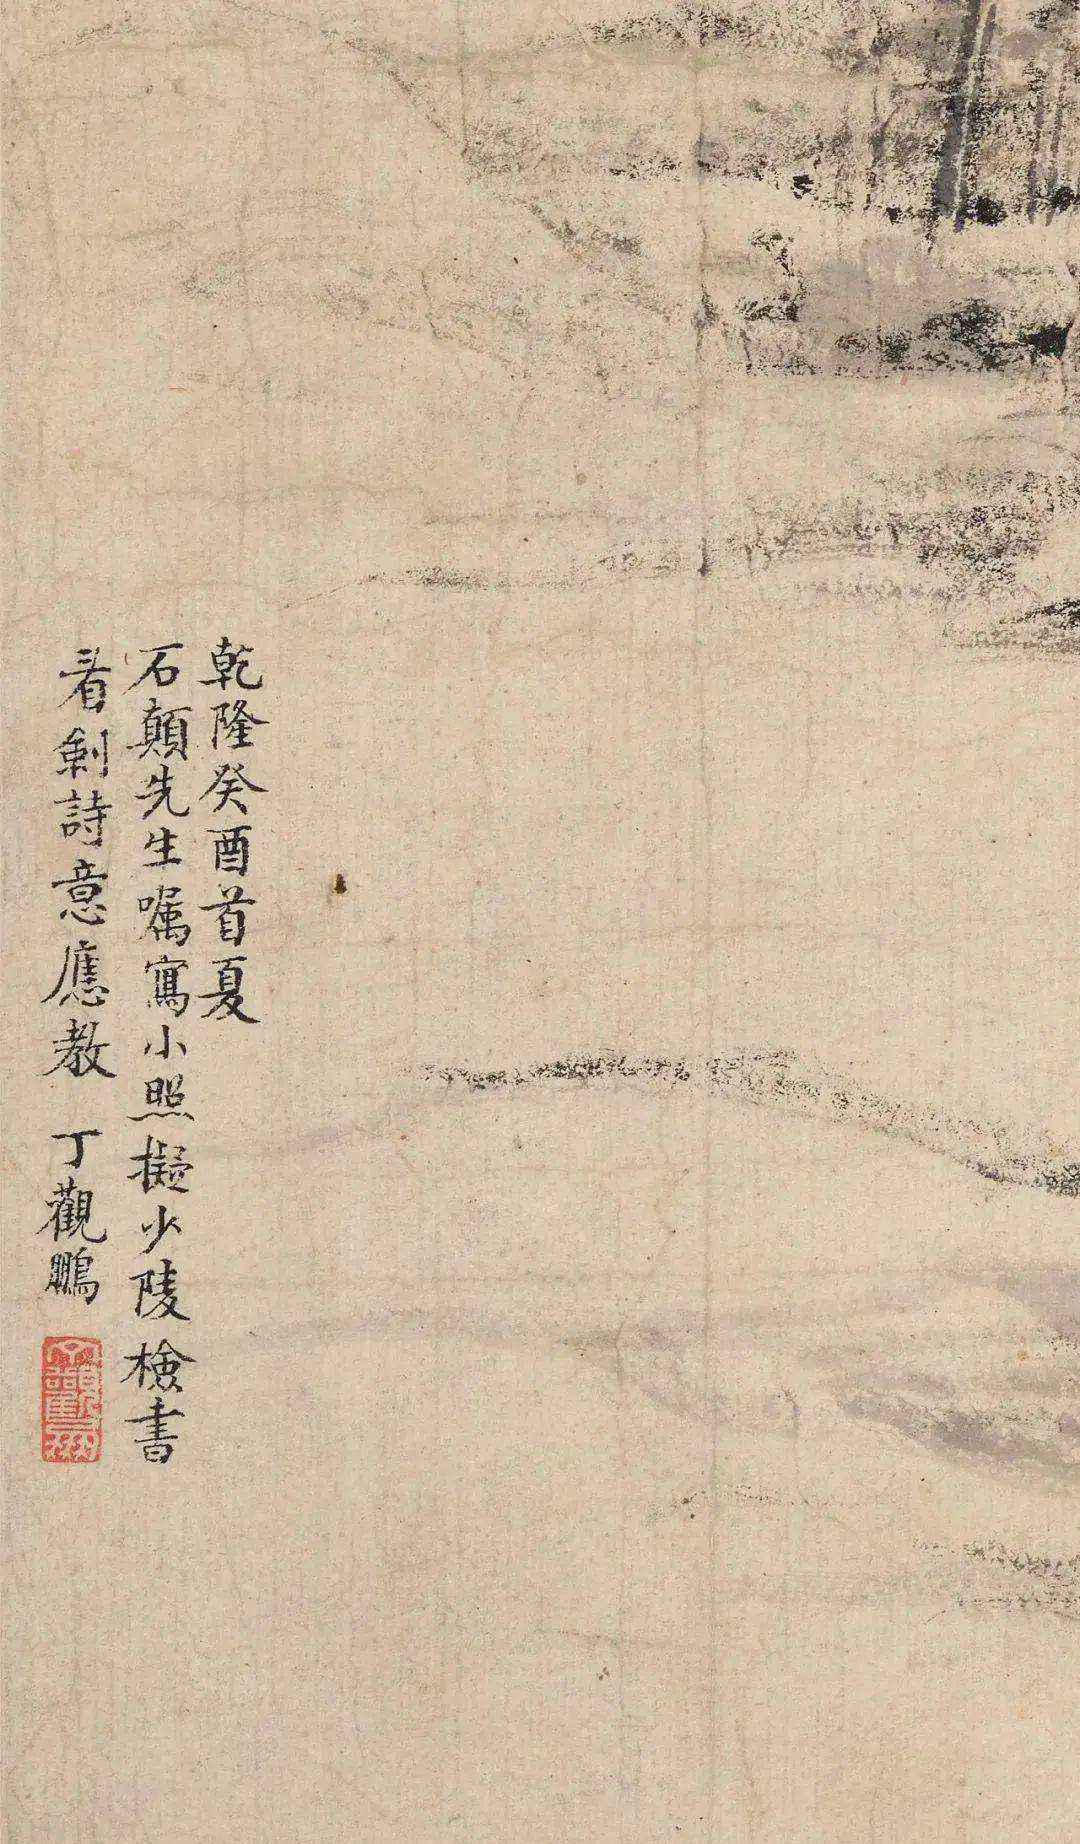 乾隆癸酉首夏
石顛先生嘱寫小照擬少陵檢書
看劍詩意應教 丁觀鵬